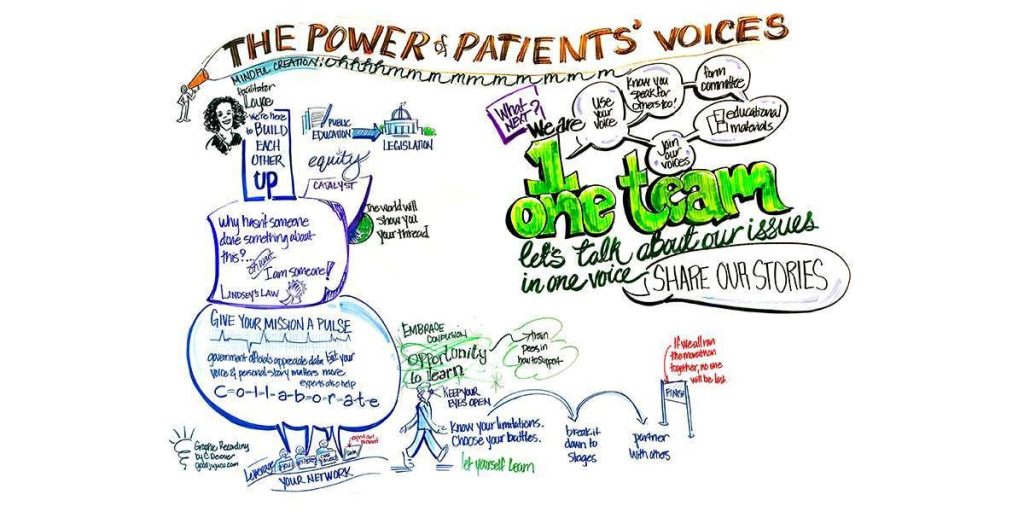 THE POWER of PATIENTS' VOICES
MINDFUL CREATION: ohhhhmmmmmmmmmm
facilitator
we're here
to BUILD
EACH
OTHER
UP
PUBLIC
EDUCATION
LEGISLATION
equity
CATALYST
the world will
show you
your thread
Why hasn't someone
done something about
this?...
oh wait
I am someone!
LINDSEY'S LAW
GIVE YOUR MISSION A PULSE
government officials appreciate data but your
voice & personal story matters more
experts also help
C-o-l-l-a-b-o-r-a-t-e
LEVERAGE
YOUR NETWORK
Graphic Recording
What
NEXT?
use
your
voice
Know you
speak for
others too!
form
committee
educational
materials
join
our
voices
We are
1
one team
let's talk about our issues
in one voice
SHARE OUR STORIES
EMBRACE
CONFUSION
opportunity
to learn
train
peers in
how to support
KEEP YOUR
EYES OPEN
Know your limitations.
Choose your battles.
let yourself learn
break it
down to
stages
partner
with others
FINISH
If we all run
the marathon
together, no one
will be last.